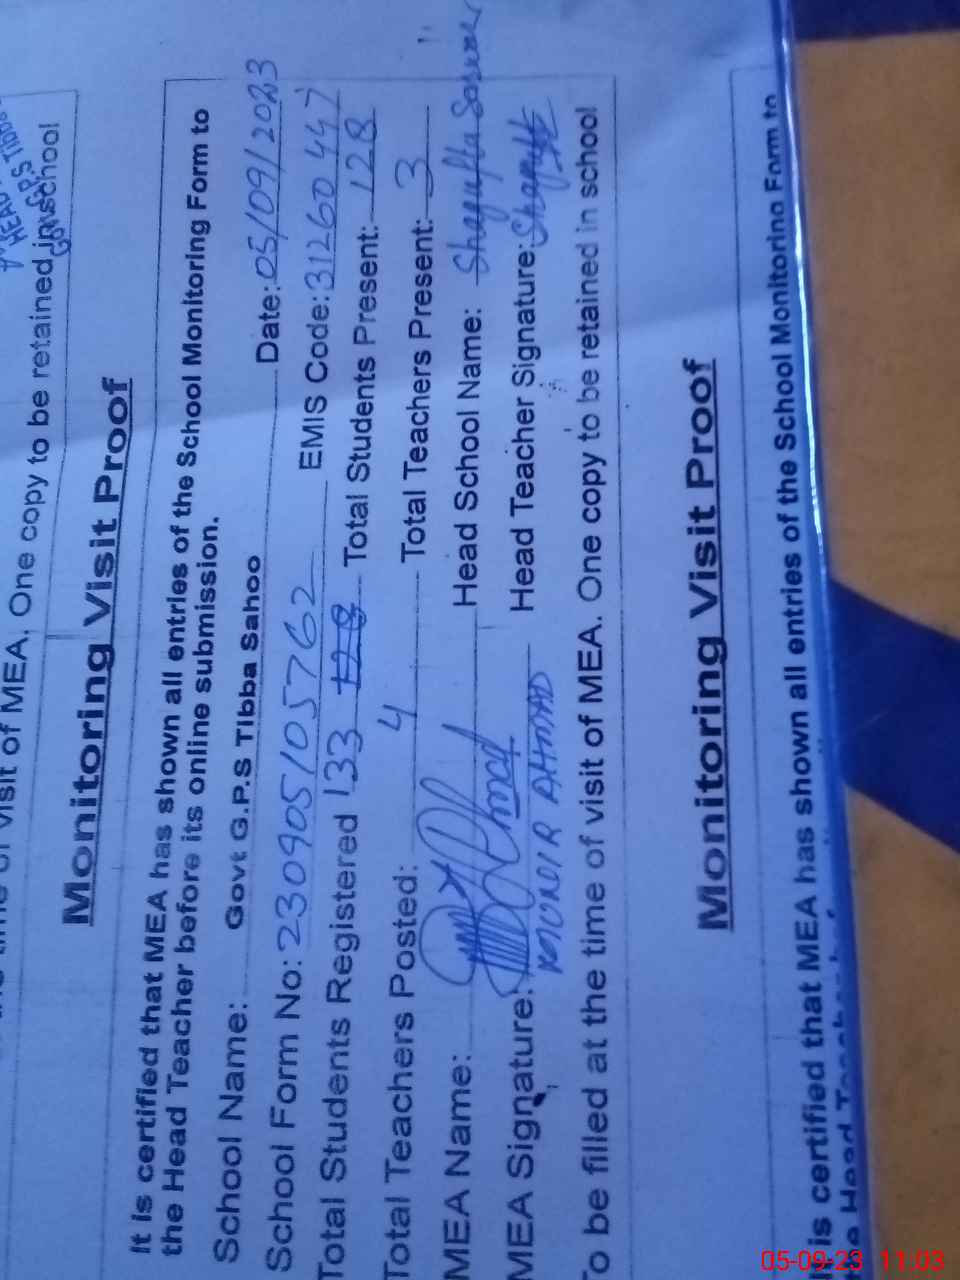 One copy to be retained in school
Monitoring Visit Proof
It is certified that MEA has shown all entries of the School Monitoring Form to
the Head Teacher before its online submission.
School Name: Govt G.P.S Tibba Sahoo Date: 05/09/2023
School Form No: 230905105762 EMIS Code: 31260447
Total Students Registered 133 Total Students Present: 128
Total Teachers Posted: 4 Total Teachers Present: 3
MEA Name: Head School Name: Shagufta
MEA Signature: MONEIR AHMAD Head Teacher Signature:
To be filled at the time of visit of MEA. One copy to be retained in school
Monitoring Visit Proof
is certified that MEA has shown all entries of the School Monitoring Form to
05-09-23 11:03